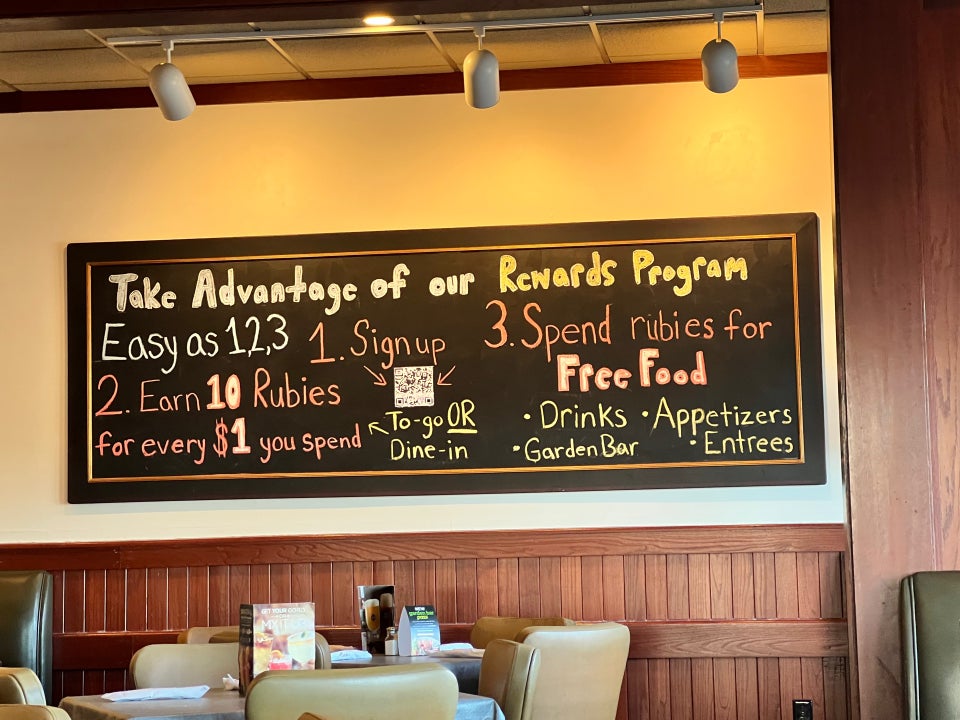 Take Advantage of our Rewards Program
Easy as 1,2,3
1. Sign up
2. Earn 10 Rubies
for every $1 you spend
To-go OR
Dine-in
3. Spend rubies for
Free Food
• Drinks • Appetizers
• Garden Bar • Entrees
GET YOUR
garden bar